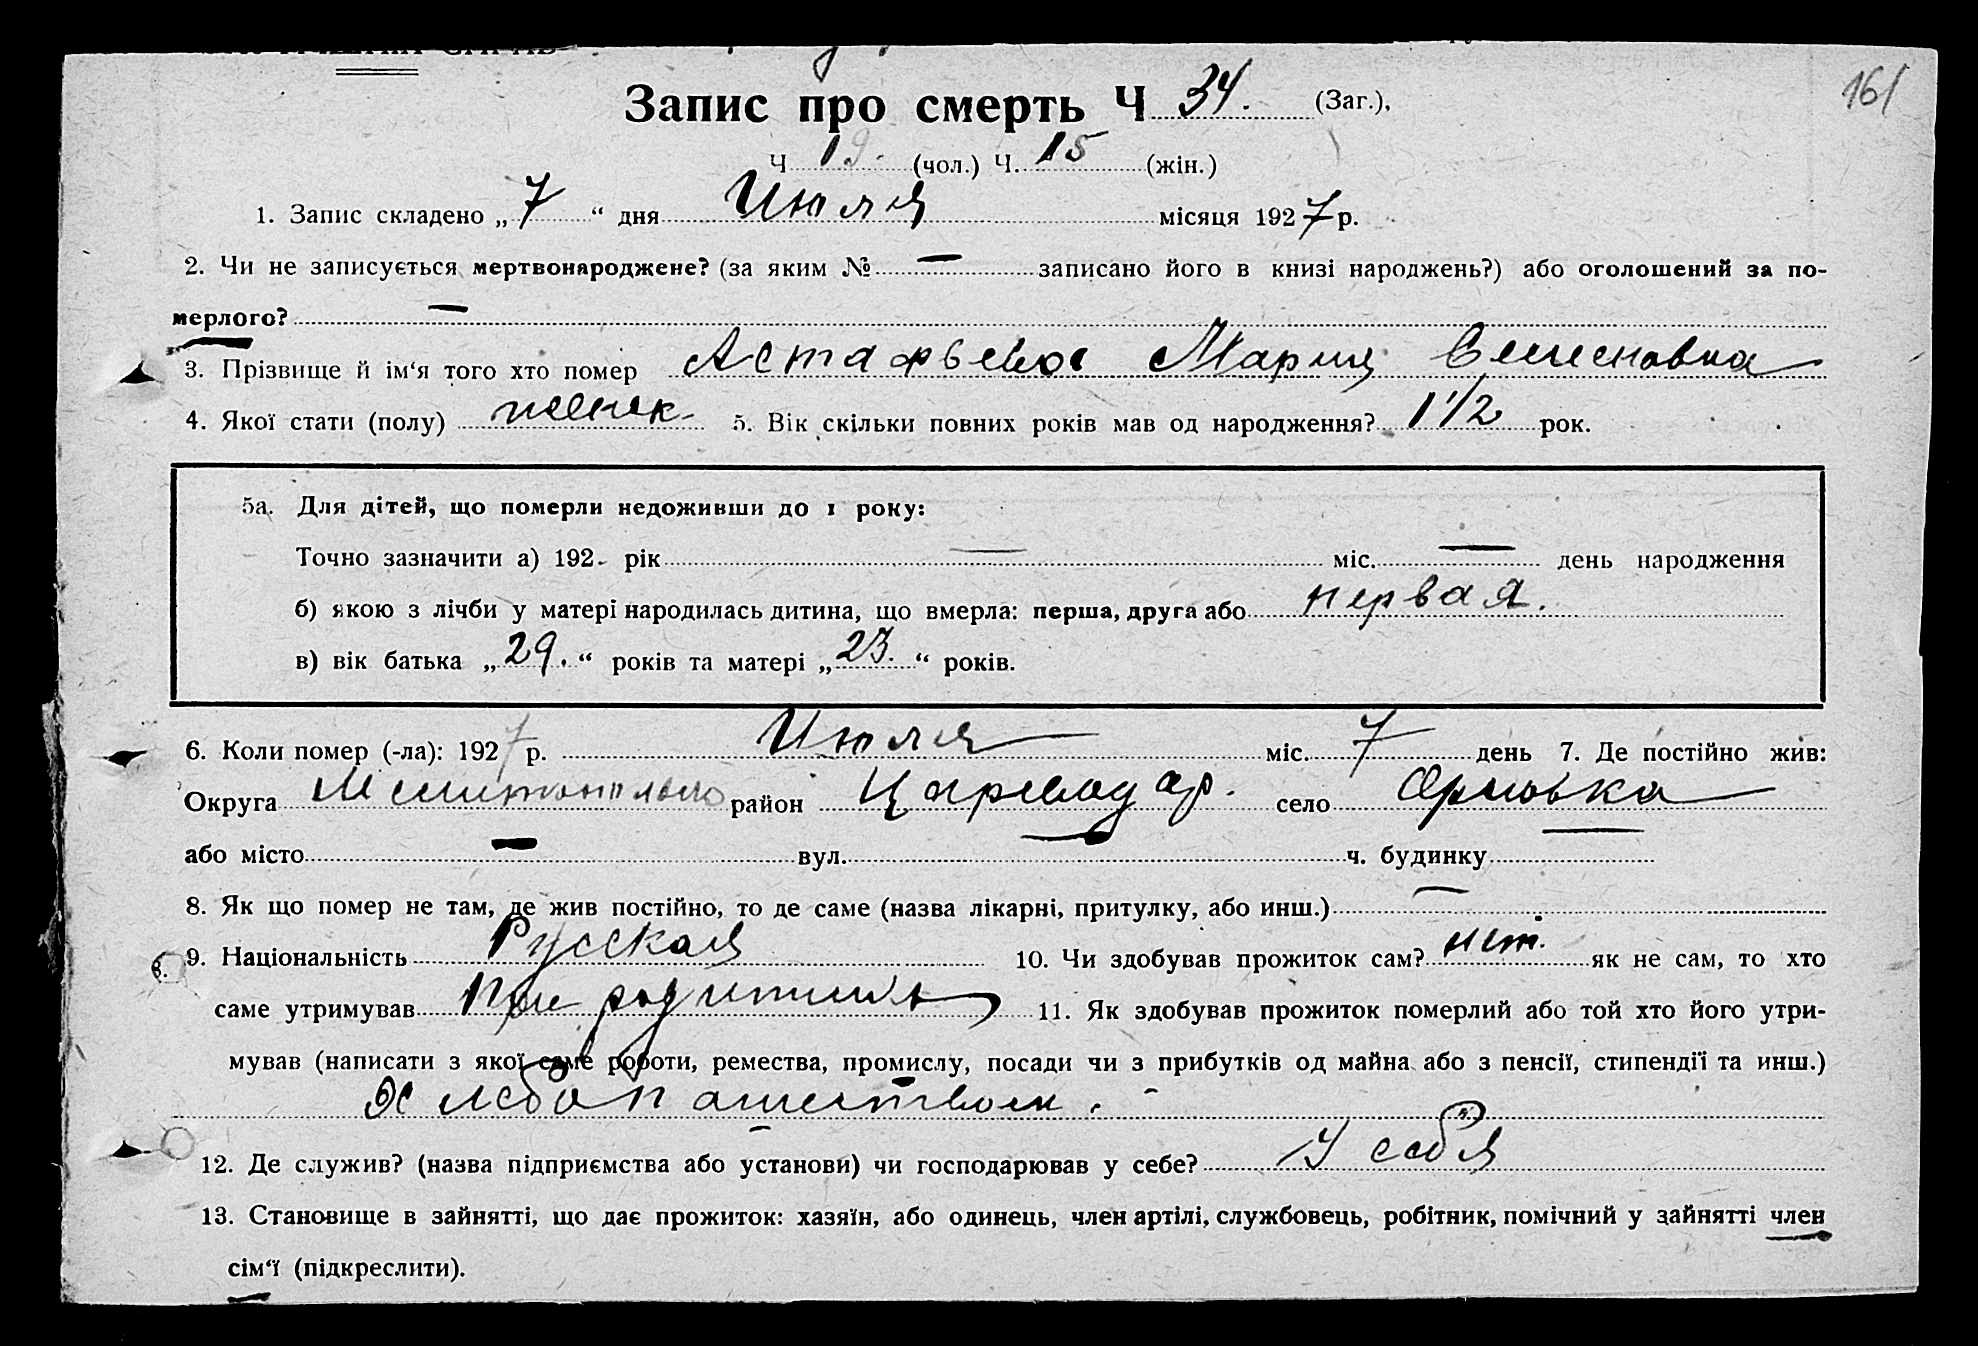 161
Запис про смерть Ч 34. (Заг.),
Ч 19. (чол.) Ч. 15 (жін.)
1. Запис складено „ 7 “ дня Июля місяця 1927 р.
2. Чи не записується мертвонароджене? (за яким № — записано його в книзі народжень?) або оголошений за по-
мерлого? —
3. Прізвище й ім‘я того хто помер Астафьева Мария Семеновна
4. Якої стати (полу) женск. 5. Вік скільки повних років мав од народження? 1 1/2 рок.
5а. Для дітей, що померли недоживши до 1 року:
Точно зазначити а) 192 рік — міс. — день народження
б) якою з лічби у матері народилась дитина, що вмерла: перша, друга або первая.
в) вік батька „ 29. “ років та матері „ 23. “ років.
6. Коли помер (-ла): 1927 р. Июля міс. 7 день 7. Де постійно жив:
Округа район Цареводар. село Орловка
або місто — вул. — ч. будинку —
8. Як що помер не там, де жив постійно, то де саме (назва лікарні, притулку, або инш.) —
9. Національність Русская 10. Чи здобував прожиток сам? нет. як не сам, то хто
саме утримував При 11. Як здобував прожиток померлий або той хто його утри-
мував (написати з якої саме роботи, ремества, промислу, посади чи з прибутків од майна або з пенсії, стипендії та инш.)
Хлебопашеством.
12. Де служив? (назва підприємства або установи) чи господарював у себе? У себя
13. Становище в зайнятті, що дає прожиток: хазяїн, або одинець, член артілі, службовець, робітник, помічний у зайнятті член
сім‘ї (підкреслити).